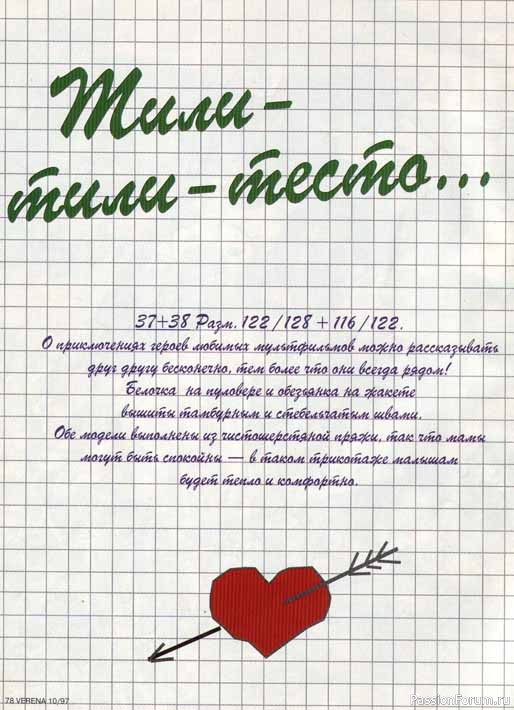 Тили-
тили-тесто...
37+38 Разм. 122/128 + 116/122.
О приключениях героев любимых мультфильмов можно рассказывать
друг другу бесконечно, тем более что они всегда рядом!
Белочка на пуловере и обезьянка на жакете
вышиты тамбурным и стебельчатым швами.
Обе модели выполнены из чистошерстяной пряжи, так что мамы
могут быть спокойны — в таком трикотаже малышам
будет тепло и комфортно.
78 VERENA 10/97
PassionForum.ru